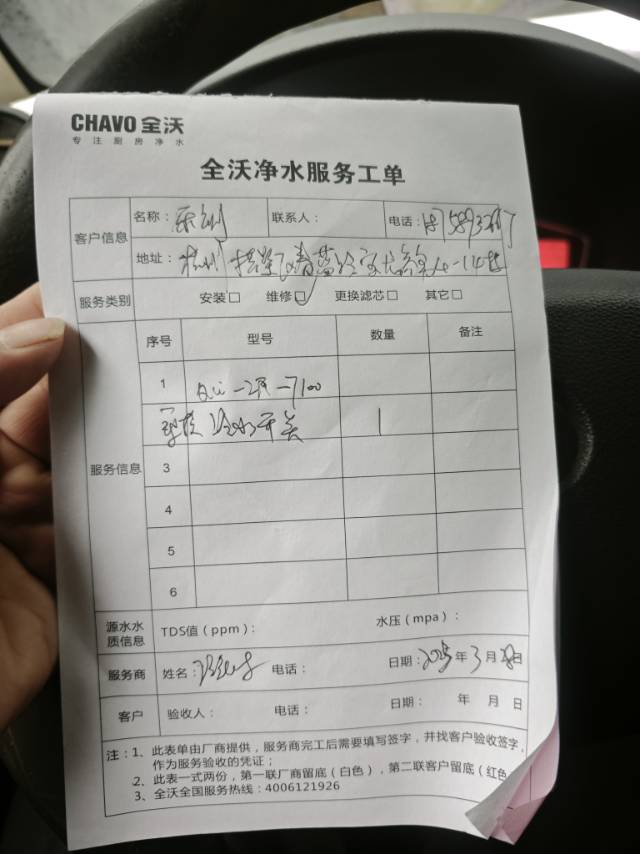 CHAVO 全沃
专注厨房净水
全沃净水服务工单
客户信息 名称： 联系人： 电话：
地址：杭州
服务类别 安装□ 维修☑ 更换滤芯□ 其它□
服务信息 序号 型号 数量 备注
1
更换 开关 1
3
4
5
6
源水水质信息 TDS值（ppm）： 水压（mpa）：
服务商 姓名： 电话： 日期：2025年3月 日
客户 验收人： 电话： 日期： 年 月 日
注：1、此表单由厂商提供，服务商完工后需要填写签字，并找客户验收签字，
作为服务验收的凭证；
2、此表一式两份，第一联厂商留底（白色），第二联客户留底（红色
3、全沃全国服务热线：4006121926